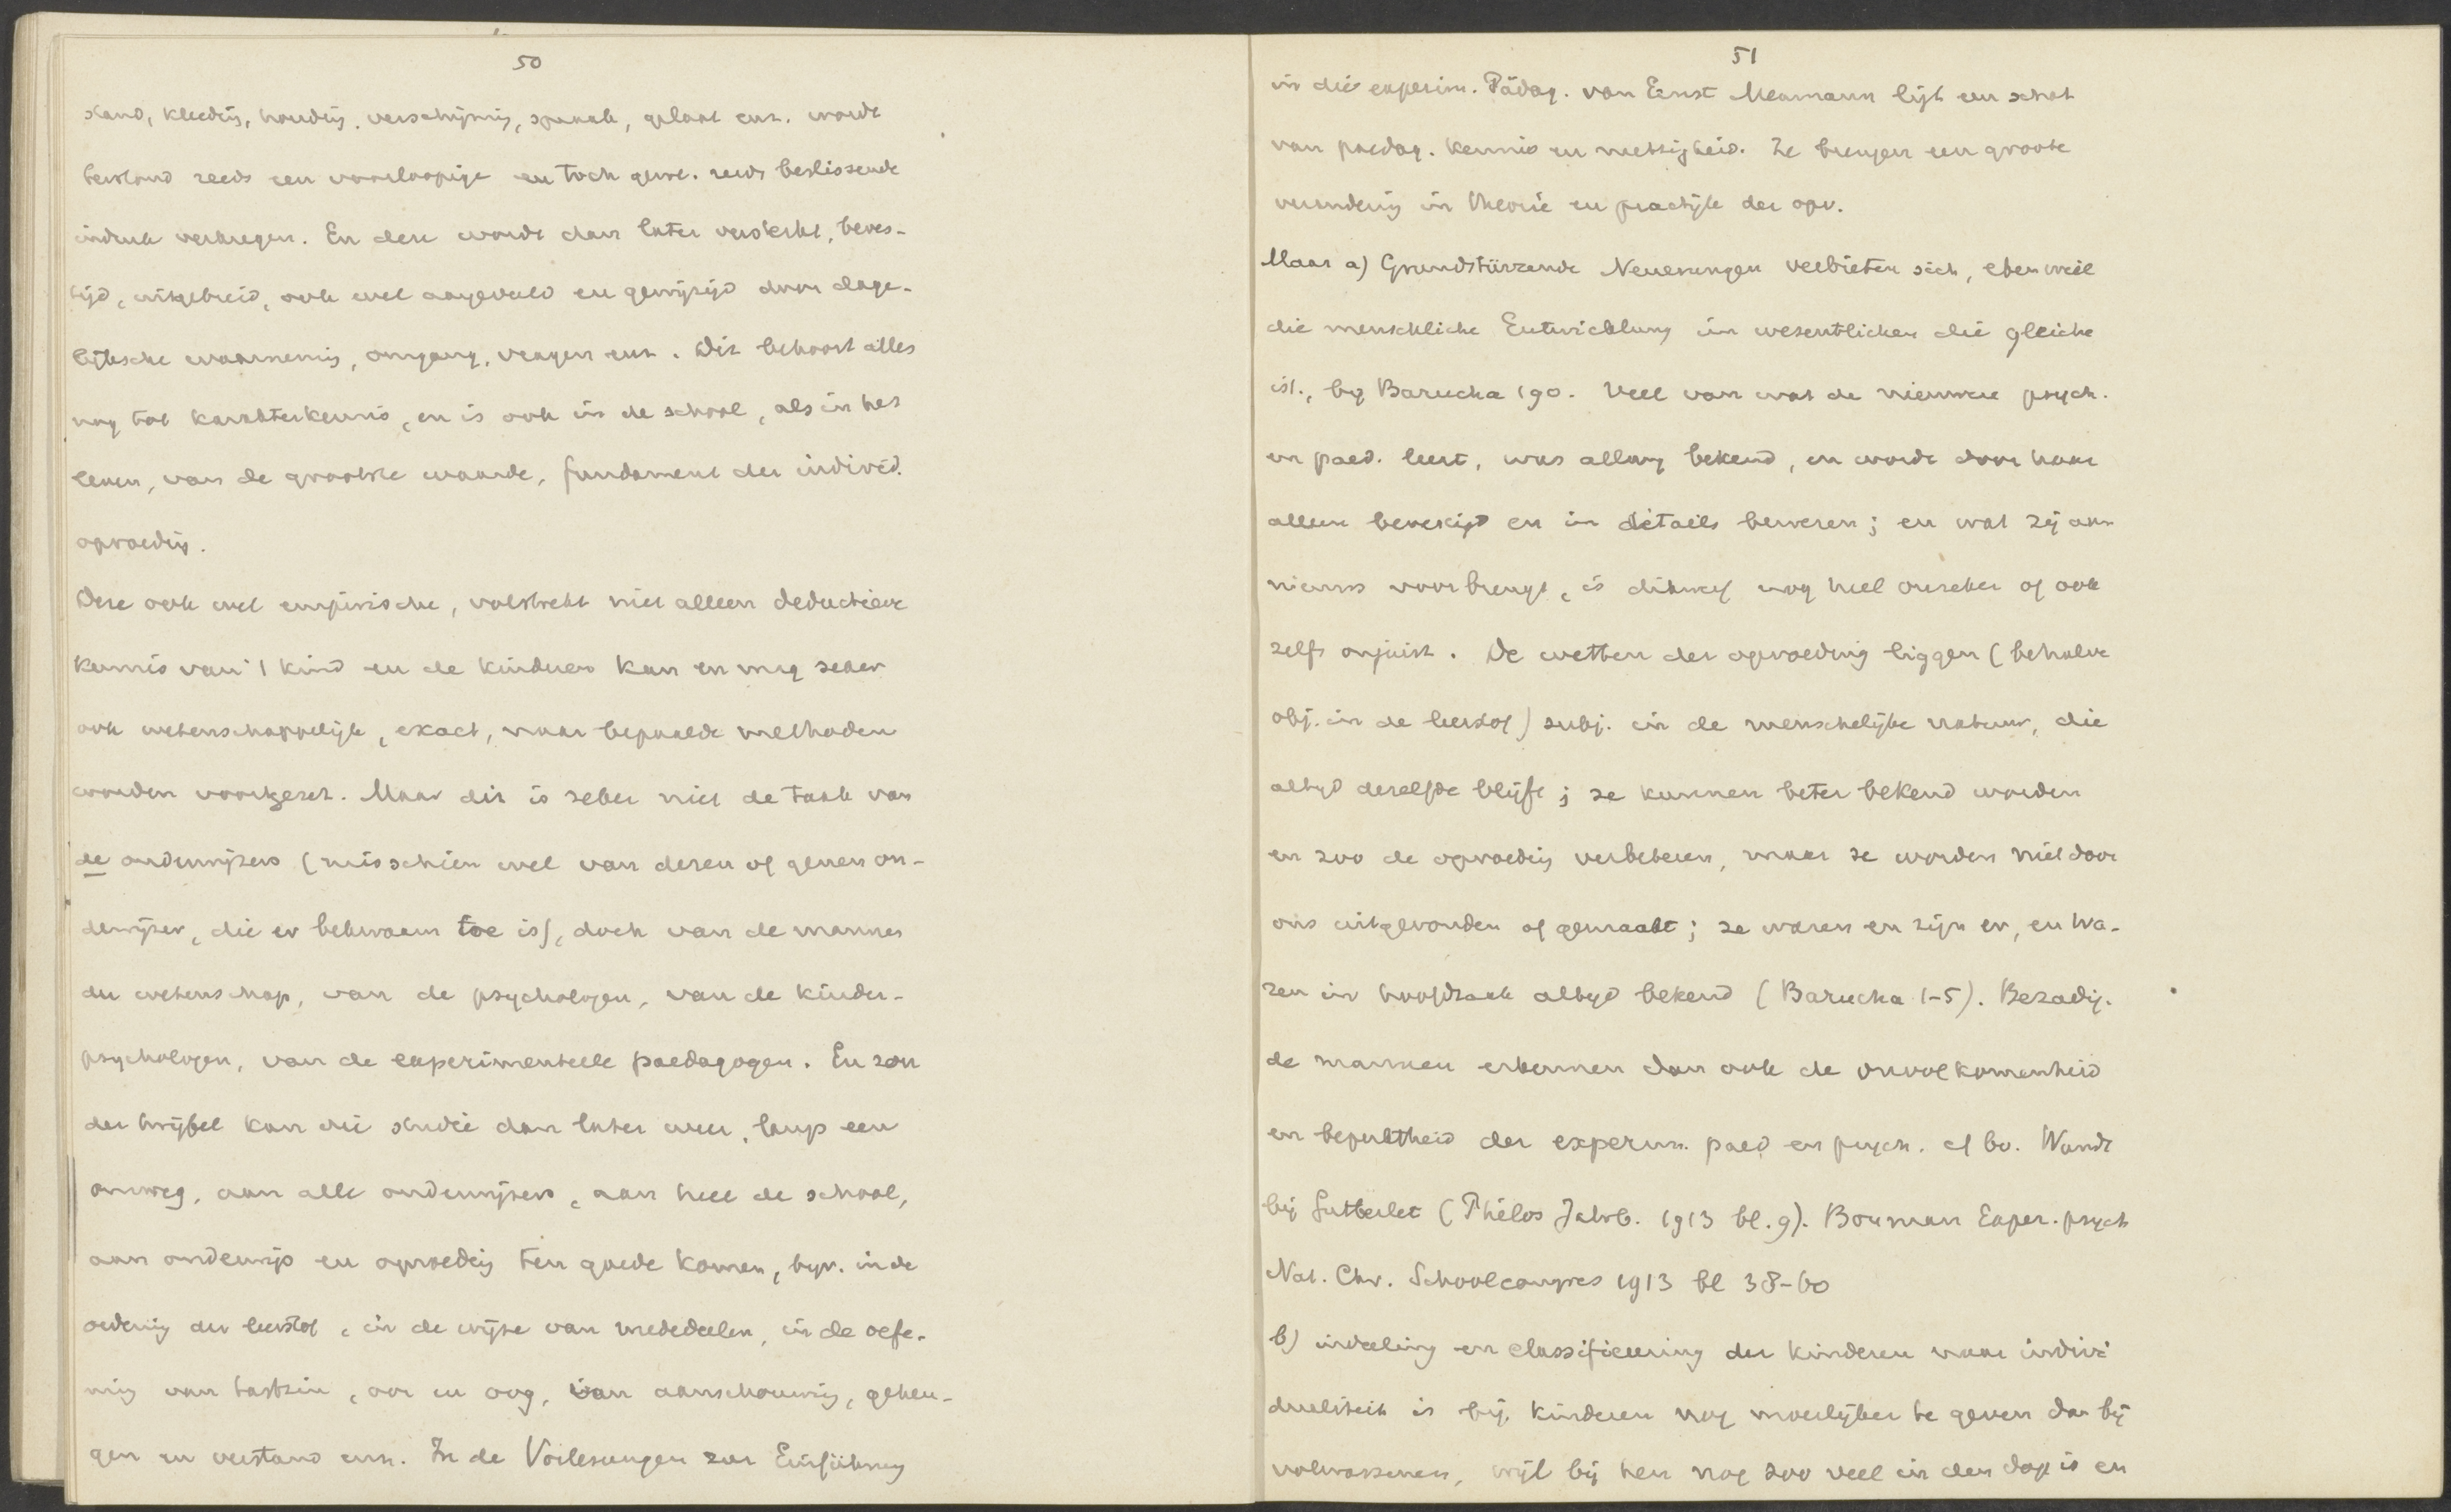 50
stand, kleedij, houding, verschijning, spraak, gelaat enz. wordt
terstond reeds een voorloopige en toch gew. reeds beslissende
indruk verkregen. En deze wordt dan later versterkt, beves-
tigd, uitgebreid, ook wel aangevuld en gewijzigd door dage-
lijksche waarneming, omgang, vragen enz. Dit behoort alles
nog tot karakterkennis, en is ook in de school, als in het
leven, van de grootste waarde, fundament der individ.
opvoeding.
Deze ook wel empirische, volstrekt niet alleen deductieve
kennis van 't kind en de kinderen kan en mag zeker
ook wetenschappelijk, exact, naar bepaalde methoden
worden voortgezet. Maar dit is zeker niet de taak van
de onderwijzers (misschien wel van dezen of genen on-
derwijzer, die er bekwaam toe is), doch van de mannen
der wetenschap, van de psychologen, van de kinder-
psychologen, van de experimenteele paedagogen. En zon
der twijfel kan die studie dan later weer, langs een
omweg, aan alle onderwijzers, aan heel de school,
aan onderwijs en opvoeding ten goede komen, bijv. in de
ordening der leerstof, in de wijze van mededeelen, in de oefe-
ning van tastzin, oor en oog, van aanschouwing, geheu-
gen en verstand enz. In de Vorlesungen zur Einführung
51
in die experim. Pädag. von Ernst Meumann ligt een schat
van paedag. kennis en nuttigheid. Ze brengen een groote
verandering in theorie en practijk der opv.
Maar a) Grundstürzende Neuerungen verbieten sich, eben weil
die menschliche Entwicklung im wesentlichen die gleiche
ist, bij Barucha 190. Veel van wat de nieuwere psych.
en paed. leert, was allang bekend, en wordt door haar
alleen bevestigd en in détails bewezen; en wat zij aan
nieuws voorbrengt, is dikwijls nog heel onzeker of ook
zelfs onjuist. De wetten der opvoeding liggen (behalve
obj. in de leerstof) subj. in de menschelijke natuur, die
altijd dezelfde blijft; ze kunnen beter bekend worden
en zoo de opvoeding verbeteren, maar ze worden niet door
ons uitgevonden of gemaakt; ze waren en zijn er, en wa-
ren in hoofdzaak altijd bekend (Barucha 1-5). Bezadig-
de mannen erkennen dan ook de onvolkomenheid
en beperktheid der experim. paed en psych. cf bv. Wundt
bij Gutberlet (Philos Jahrb. 1913 bl. 9). Bouman Exper. psych
Nat. Chr. Schoolcongres 1913 bl 38-60
b) indeeling en classificeering der kinderen naar indivi
dualiteit is bij kinderen nog moeilijker te geven dan bij
volwassenen, wijl bij hen nog zoo veel in den dop is en